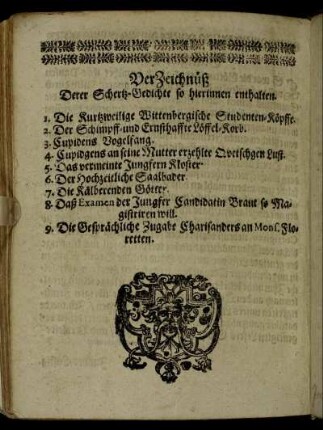 VerZeichnüß
Derer Schertz-Gedichte so hierinnen enthalten.
1. Die Kurtzweilige Wittenbergische Studenten-Köpffe.
2. Der Schimpff-und Ernsthaffte Löffel-Korb.
3. Cupidens Vogelfang.
4. Cupidgens an seine Mutter erzehlte Qvetschgen Lust.
5. Das vermeinte Jungfern Kloster
6. Der Hochzeitliche Saalbader.
7. Die Kälberenden Götter.
8. Daß Examen der Jungfer Candidatin Braut so Ma-
gistriren will.
9. Die Gesprächliche Zugabe Charisanders an Mons. Flo-
retten.